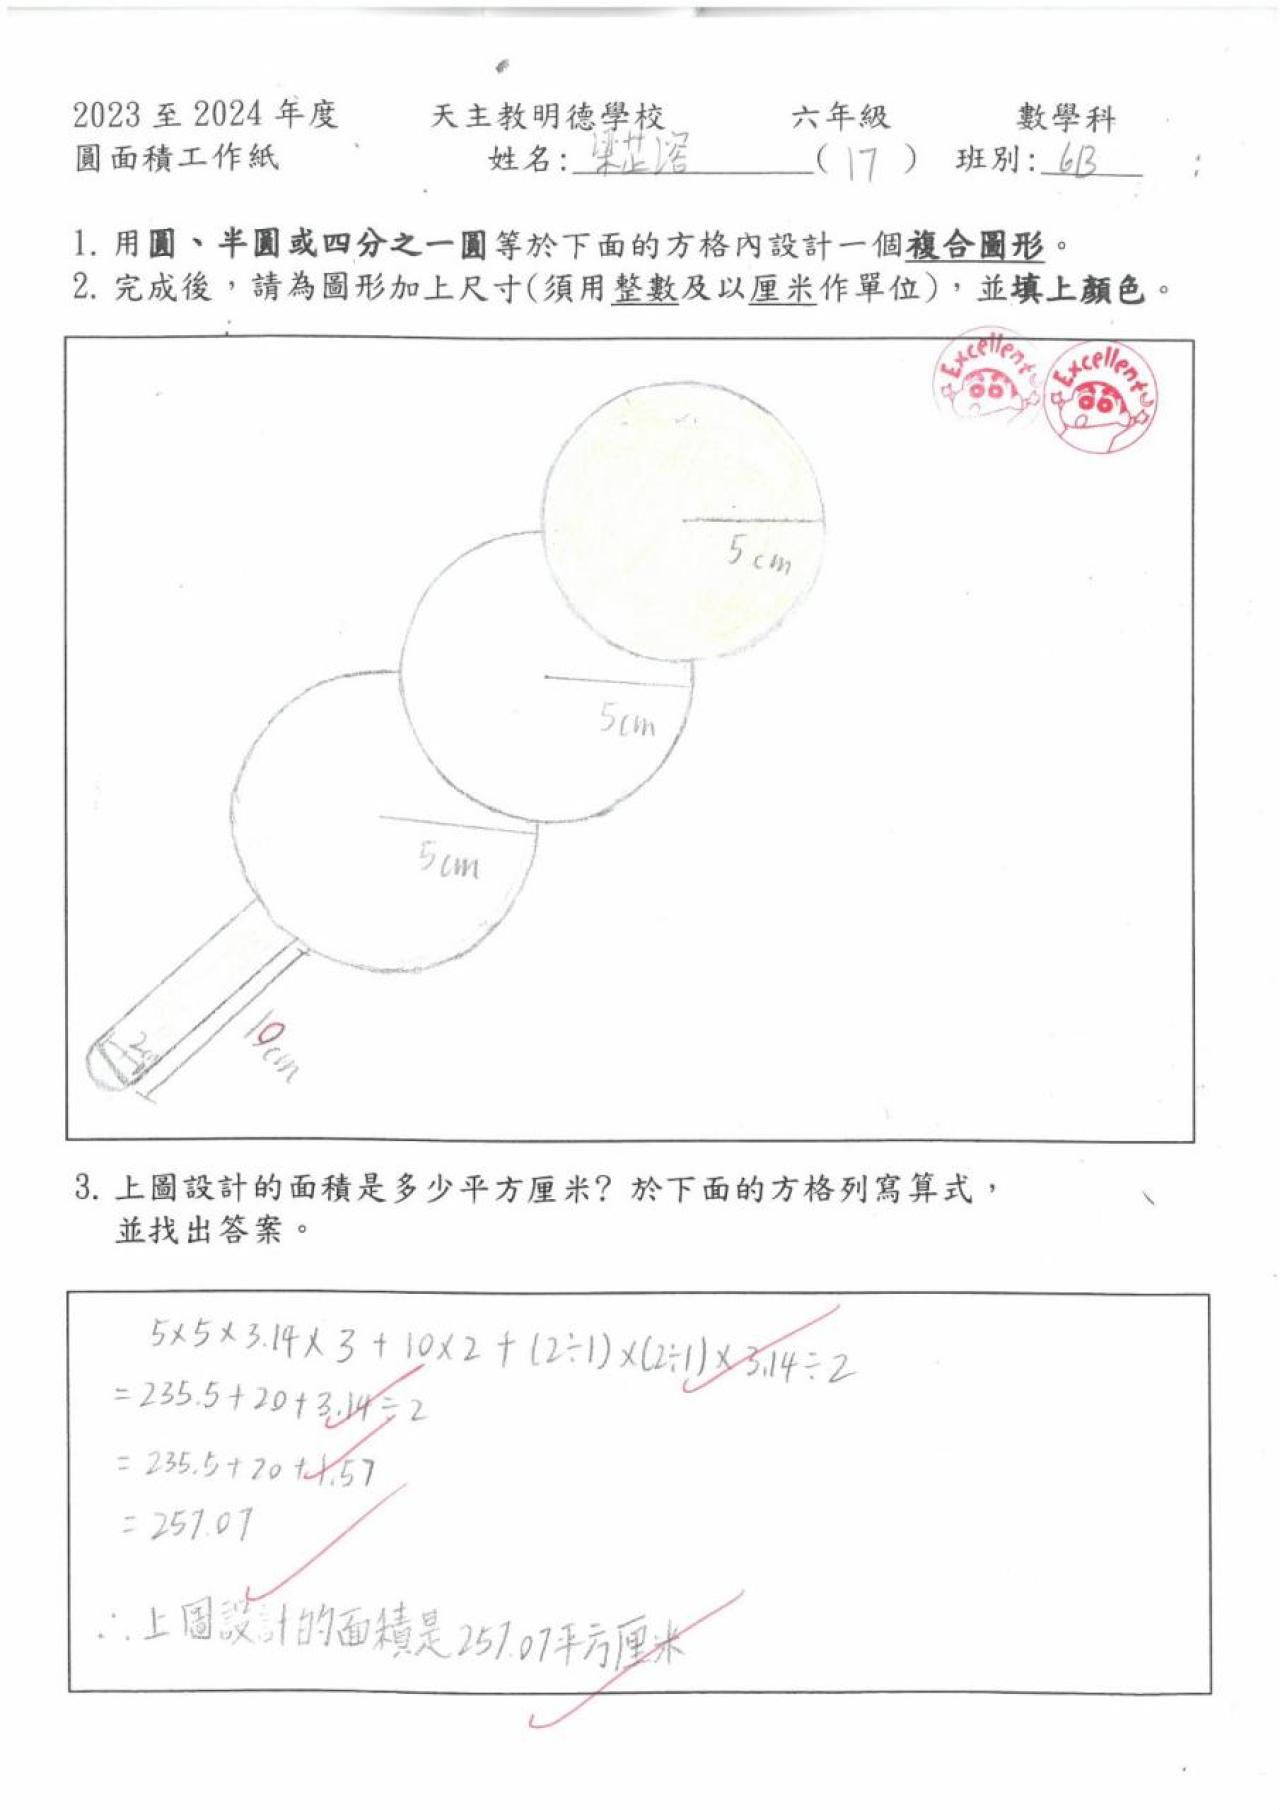 2023 至 2024 年度 天主教明德學校 六年級 數學科
圓面積工作紙 姓名: 梁芷溶 ( 17 ) 班別: 6B
1. 用圓、半圓或四分之一圓等於下面的方格內設計一個複合圖形。
2. 完成後，請為圖形加上尺寸(須用整數及以厘米作單位)，並填上顏色。
Excellent
Excellent
5cm
5cm
5cm
2cm
10cm
3. 上圖設計的面積是多少平方厘米? 於下面的方格列寫算式，
並找出答案。
5×5×3.14×3+10×2+(2÷1)×(2÷1)×3.14÷2
=235.5+20+3.14÷2
=235.5+20+1.57
=257.07
∴上圖設計的面積是257.07平方厘米